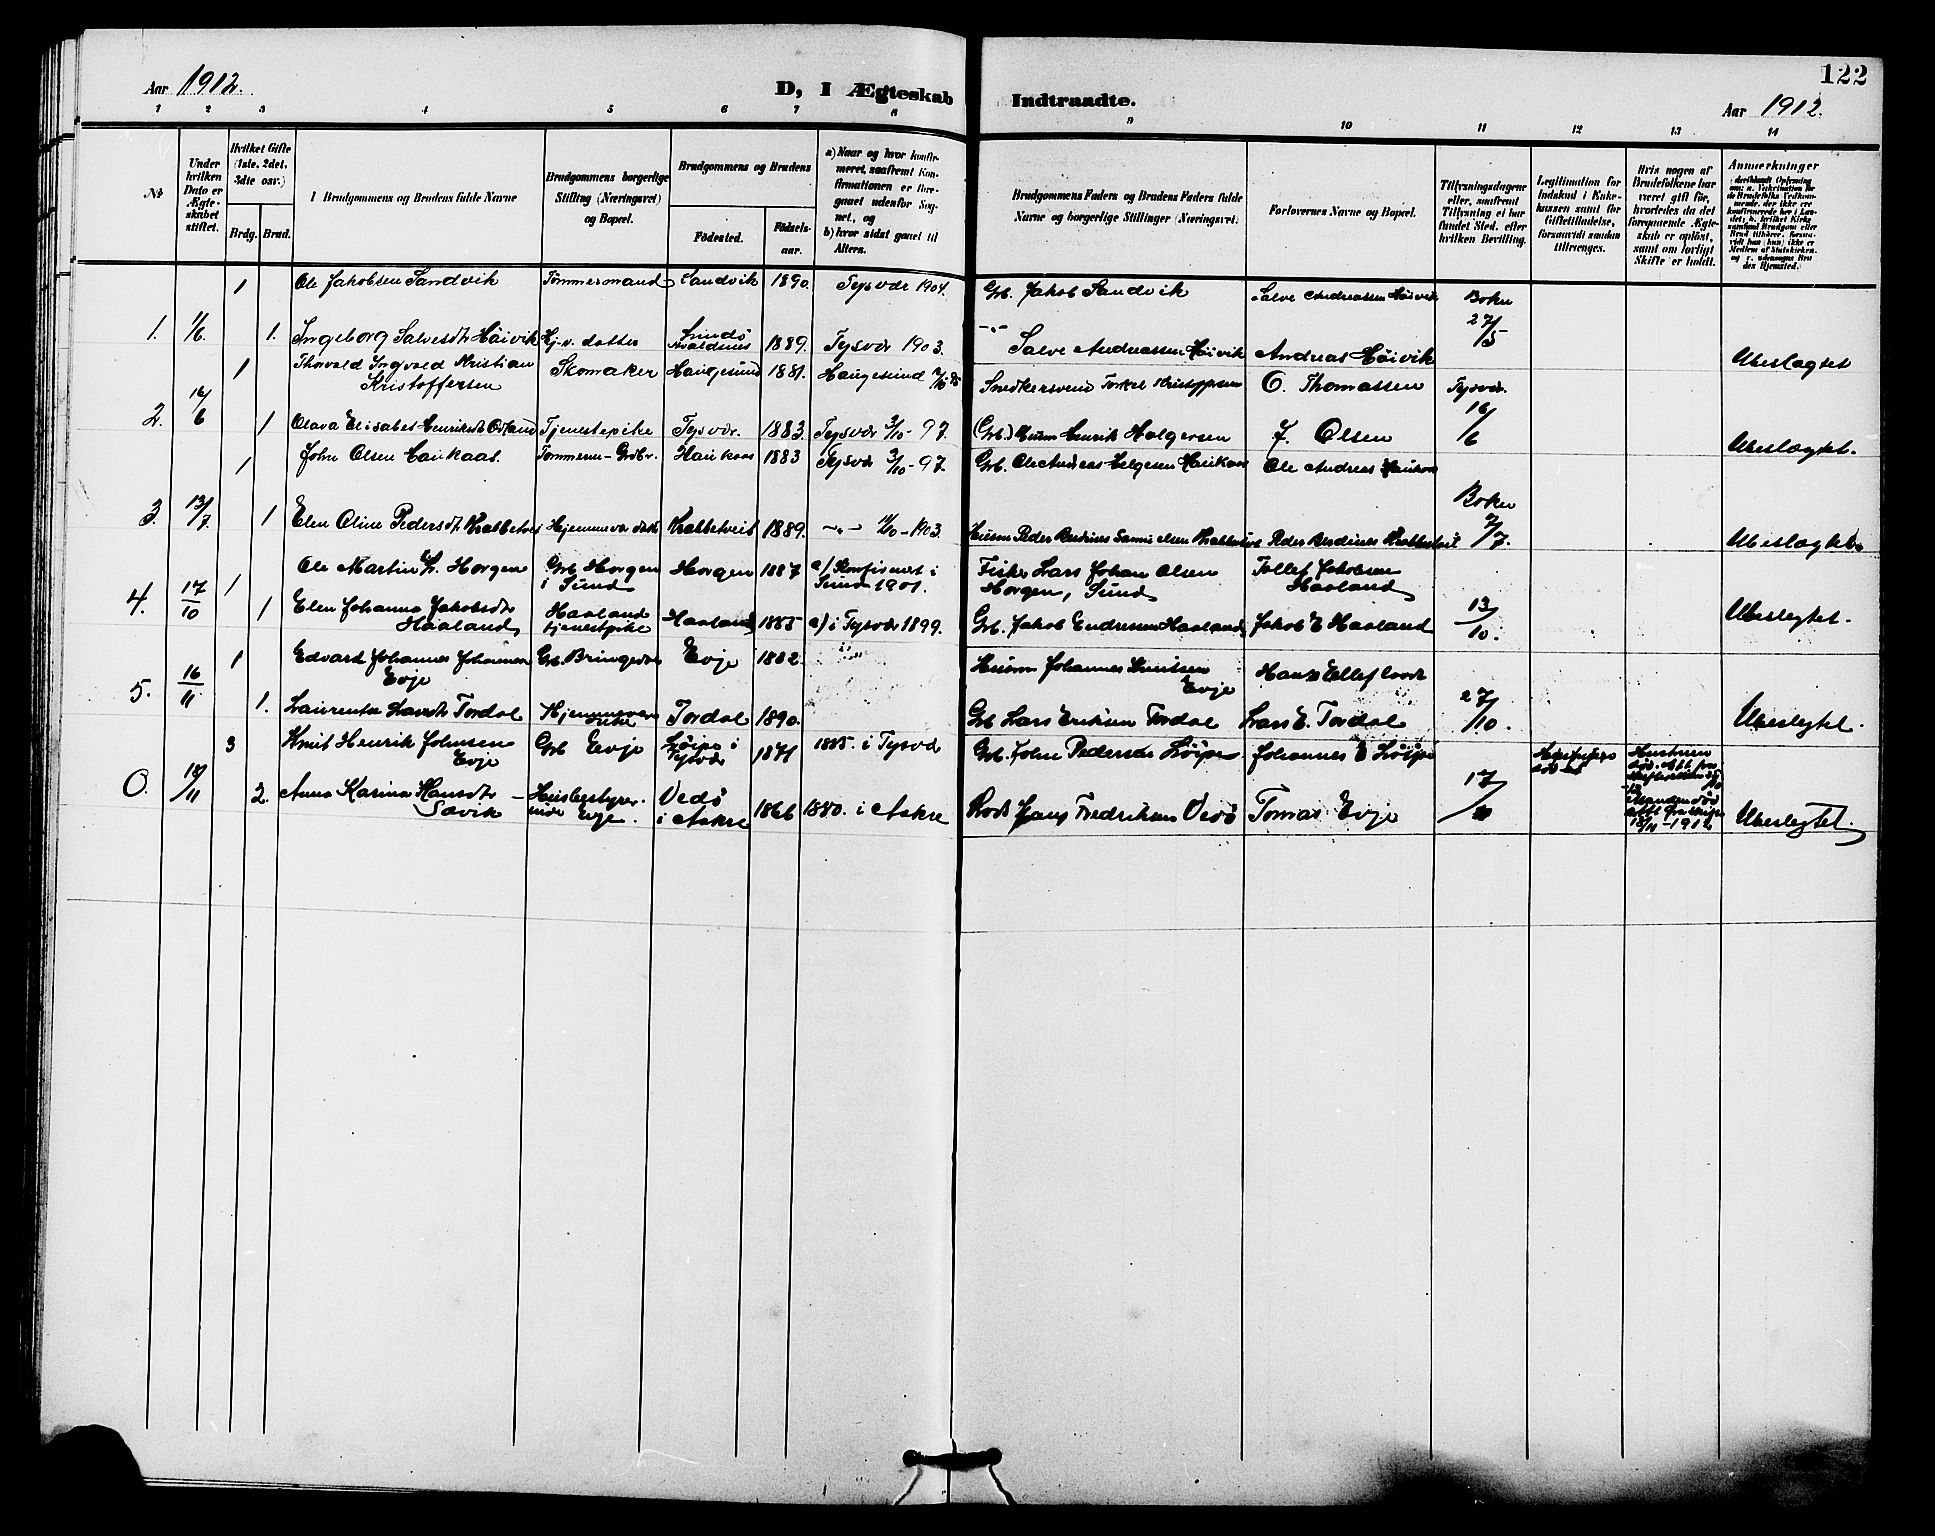 122
Aar 1912.
D, I Ægteskab Indtraadte.
Aar 1912.
1 2 3 4 5 6 7 8 9 10 11 12 13 14
No
Under hvilken Dato er Ægteskabet stiftet.
Hvilket Gifte (1ste, 2det, 3dte osv.)
Brdg. Brud.
I Brudgommens og Brudens fulde Navne
Brudgommens borgerlige Stilling (Næringsvei) og Bopæl.
Brudgommens og Brudens
Fødested. Fødselsaar.
a) Naar og hvor konfirmeret, saafremt Konfirmationen er foregaaet udenfor Sognet, og
b) hvor sidst gaaet til Alters.
Brudgommens Faders og Brudens Faders fulde Navne og borgerlige Stillinger (Næringsvei).
Forlovernes Navne og Bopæl.
Tillysningsdagene eller, saafremt Tillysning ei har fundet Sted, efter hvilken Bevilling.
Legitimation for Indskud i Enkekassen samt for Giftetilladelse, forsaavidt saadan tiltrænges.
Hvis nogen af Brudefolkene har været gift før, hvorledes da det foregaaende Ægteskab er opløst, samt om lovligt Skifte er holdt.
Anmærkninger
1 Ole Jakobsen Sandvik Tømmermand Sandvik 1890 Tysvær 1904. Grb. Jakob Sandvik Salve Andreassen Høivik Boken
1. 1/6. 1. Ingeborg Salvesdtr Høivik Hj.v. datter 1889. Tysvær 1903. Salve Andreassen Høivik Andreas Høivik 27/5 Ubeslægtet
1 Thorvald Ingvald Kristian Kristoffersen Skomaker Haugesund 1881. Haugesund Snedkersvend Torkel Kristoffersen O. Thomassen Tysvær.
2. 16/6 1 Olava Elisabet Henriksdtr Tjenestepike Tysvær. 1883. Tysvær 3/10-97. (Grb.) Husm Henrik Holgersen J. Olsen 16/6 Ubeslægtet.
1 John Olsen Haukaas. Haukaas 1883 Tysvær 3/10-97. Grb. Ole Andreas Helgesen Haukaas Ole Andreas Haukaas
Boken
3. 13/7 1 Elen Oline Pedersdtr Krabbetveit Krabbetveit 1889. -"- 4/10-1903. Husm Peder Berdines Krabbetveit Peder Berdines Krabbetveit 7/7. Ubeslægtet.
1 Ole Martin L. Horgen Grb Horgen i Sund Horgen 1887 a) Konfirmert i Sund 1901. Fisker Lars Johan Olsen Horgen, Sund Tollef Jakobsen Haaland
4. 17/10 1 Elen Johanna Jakobsdtr Haaland Haaland tjenestpike Haaland 1885 a) i Tysvær 1899. Grb. Jakob Endresen Haaland Jakob E Haaland 13/10. Ubeslegtet.
1 Edvard Johannes Johannesen Evje Evje 1882. -"- Husm Johannes Knutsen Evje
5. 16/11 1. Laurentse Larsdtr Tordal Tordal 1890. Grb Lars Eriksen Tordal Lars E. Tordal 27/10. Ubeslegtet.
3 Knut Henrik Johnsen Evje Grb Evje Løipe i Tysvær 1871 1885. i Tysvær Grb. John Pedersen Løipe Johannes E Løipe
18/11 2. Anna Karina Hansdtr Sævik - Husbestyrerinde Evje. Vedø i Aakre 1866 1880. i Aakre Hans Fredriksen Vedø Tomas Evje 17/11 18/11-1912 Ubeslegtet.